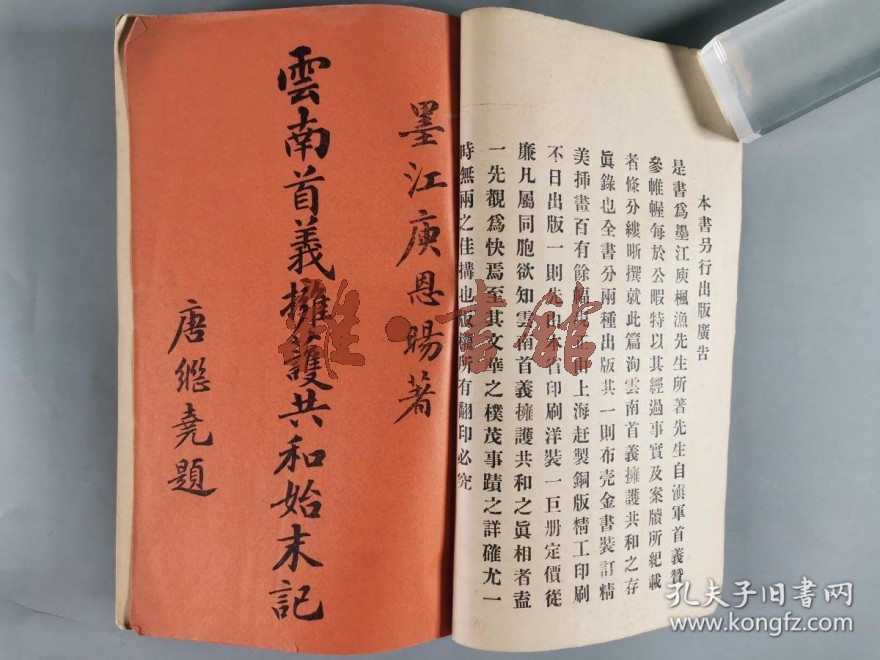 本書另行出版廣告
是書爲墨江庾楓漁先生所著先生自滇軍首義贊
參帷幄每於公暇特以其經過事實及案牘所紀載
者條分縷晰撰就此篇洵雲南首義擁護共和之存
眞錄也全書分兩種出版共一則布壳金書裝訂精
美揷畫百有餘幅現正由上海赶製銅版精工印刷
不日出版一則先由本省印刷洋裝一巨册定價從
廉凡屬同胞欲知雲南首義擁護共和之眞相者盍
一先覩爲快焉至其文華之樸茂事蹟之詳確尤一
時無兩之佳搆也版權所有翻印必究
墨江庾恩暘著
雲南首義擁護共和始末記
唐繼堯題
雜·書館
孔夫子旧书网
kongfz.com